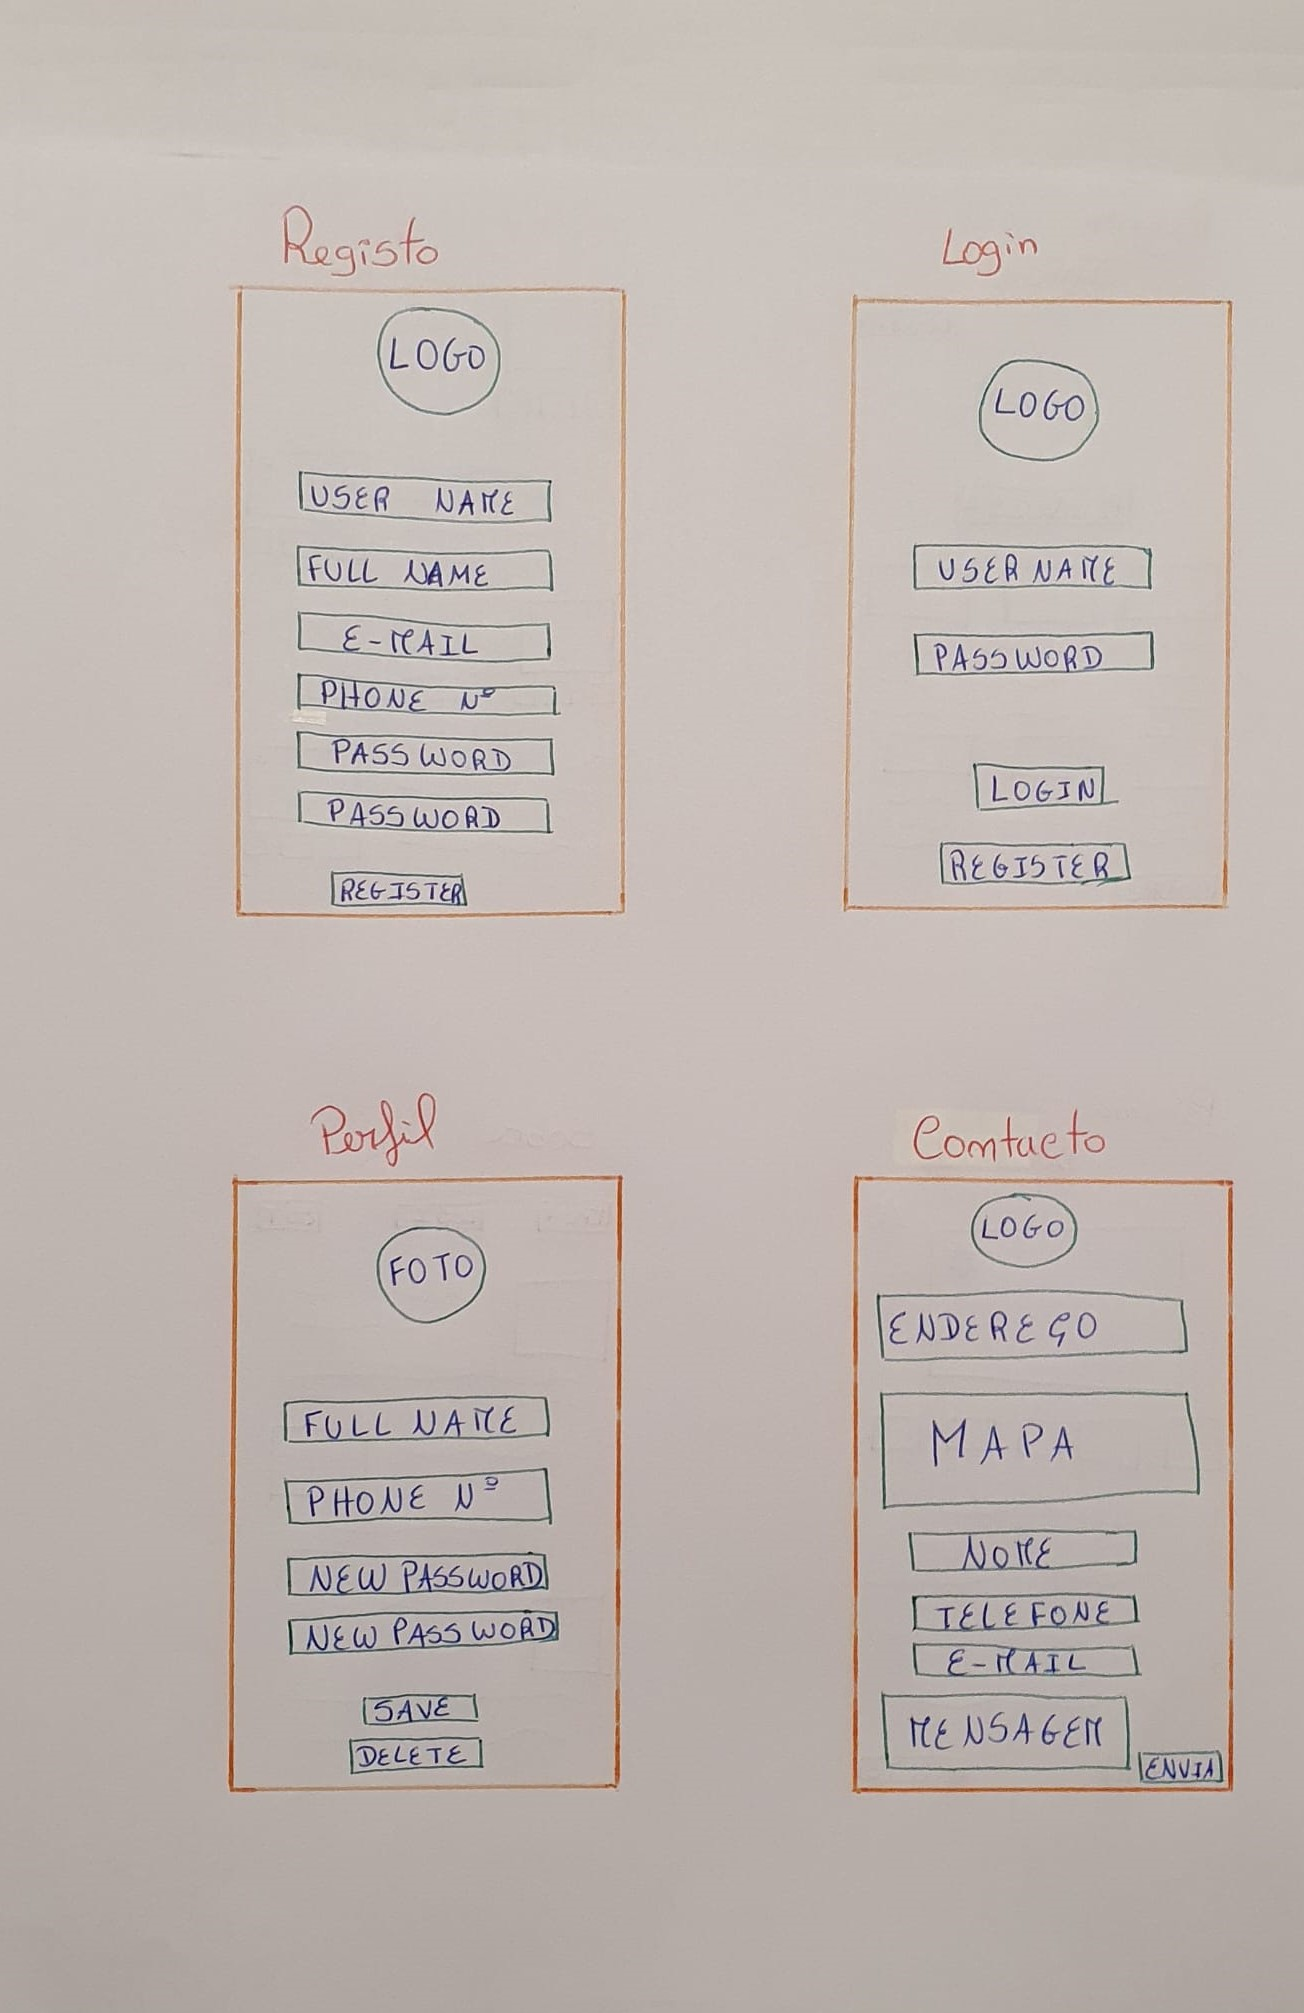 Registo
LOGO
USER NAME
FULL NAME
E-MAIL
PHONE Nº
PASSWORD
PASSWORD
REGISTER
Login
LOGO
USERNAME
PASSWORD
LOGIN
REGISTER
Perfil
FOTO
FULL NAME
PHONE Nº
NEW PASSWORD
NEW PASSWORD
SAVE
DELETE
Contacto
LOGO
ENDEREÇO
MAPA
NOME
TELEFONE
E-MAIL
MENSAGEM
ENVIA